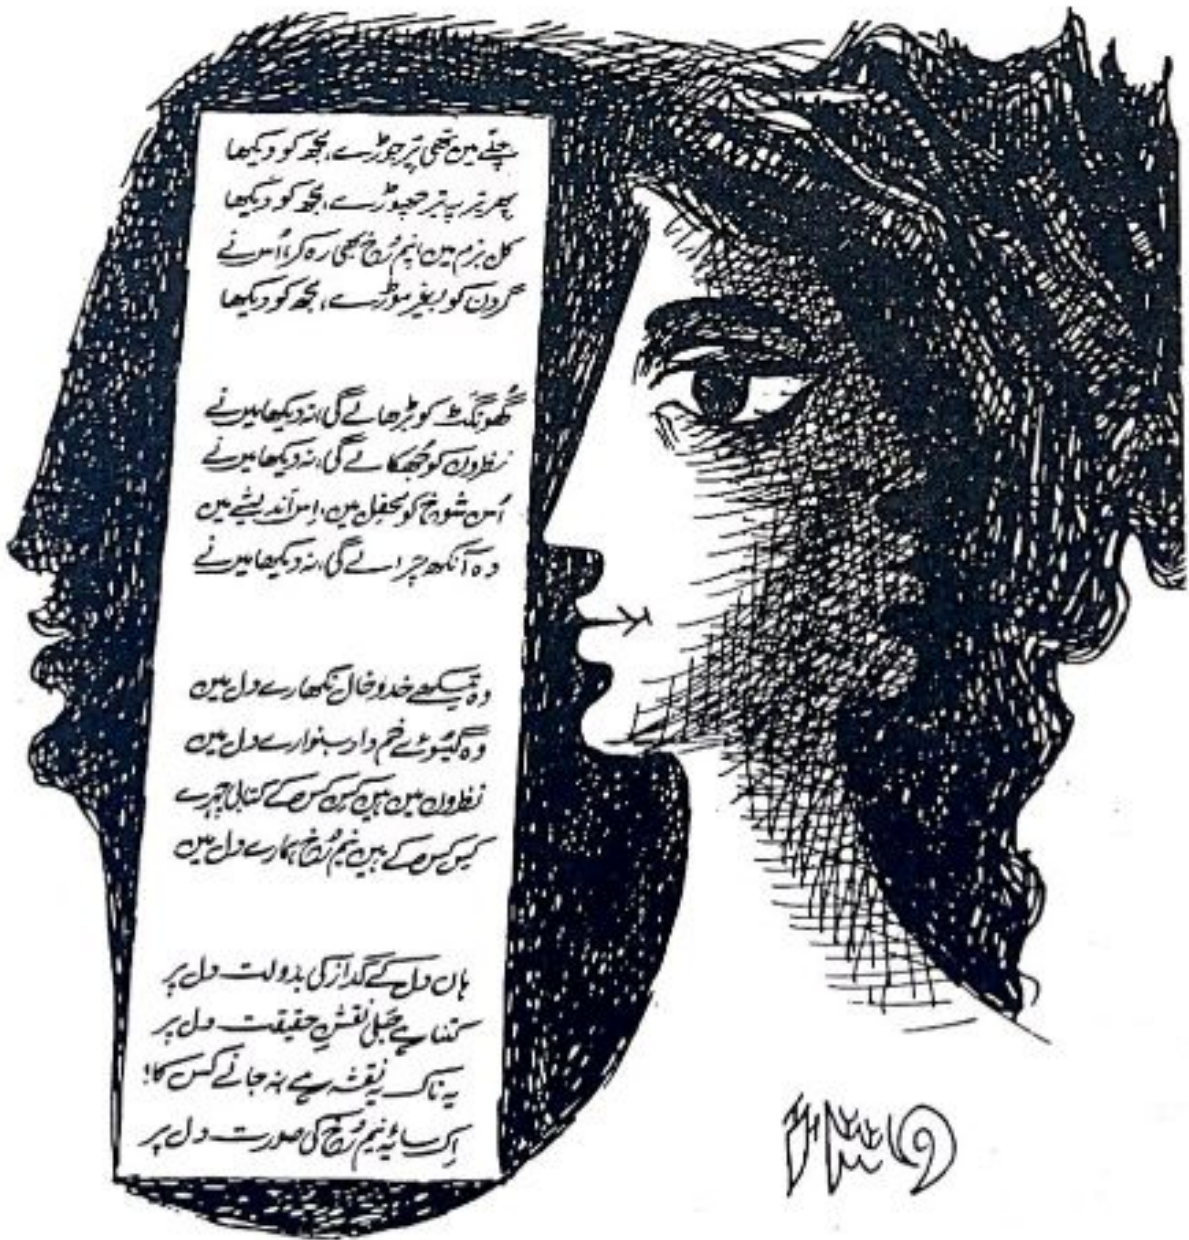 چلّے میں تھی تیر جوڑے، مجھ کو دیکھا
پھر تیر پہ تیر چھوڑے، مجھ کو دیکھا
کل بزم میں، نیم رُخ بھی رہ کر، اُس نے
گردن کو بغیر موڑے، مجھ کو دیکھا
گھونگٹ کو بڑھائے گی، نہ دیکھا میں نے
نظروں کو جُھکائے گی، نہ دیکھا میں نے
اُس شوخ کو محفل میں، اِس اندیشے میں
وہ آنکھ چرائے گی، نہ دیکھا میں نے
وہ تیکھے خد و خال نکھارے دل میں
وہ گیسوئے خم دار سنوارے دل میں
نظروں میں ہیں کس کس کے کتابی چہرے
کس کس کے ہیں نیم رُخ ہمارے دل میں
ہاں دل کے گداز کی بدولت دل پر
کتنا ہے جلی نقشِ حقیقت دل پر
یہ ناک یہ نقشہ ہے نہ جانے کس کا!
اِک سایۂ نیم رُخ کی صورت دل پر